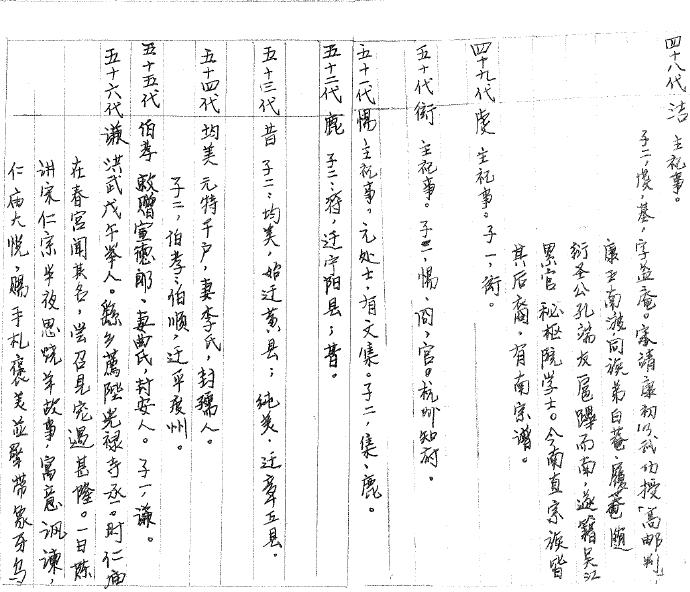 四十八代 洁 主祀事。
子二,虔,基,字益庵。宋靖康初以武功授高邮判,
康王南渡,同族弟白菴、履菴随
衍圣公孔端友扈跸而南,遂籍吴江
累官秘枢院学士。今南直宗族皆
其后裔,有南宗谱。
四十九代 虔 主祀事。子一,衔。
五十代 衔 主祀事。子二,惕、问,官杭州知府。
五十一代 惕 主祀事,元处士,有文集。子二,集、鹿。
五十二代 鹿 子二:符,迁宁阳县;昔。
五十三代 昔 子二:均美,始迁黄县;纯美,迁章丘县。
五十四代 均美 元特千户,妻李氏,封孺人。
子二,伯孝、伯顺,迁平度州。
五十五代 伯孝 敕赠宣德郎、妻曲氏,封安人。子一,谦。
五十六代 谦 洪武戊午举人。县乡荐陞光禄寺丞。时仁庙
在春宫闻其名,尝召见宠遇甚隆。一日陈
讲宋仁宗半夜思烧羊故事,寓意讽谏,
仁庙大悦,赐手札褒美並犀带象牙乌